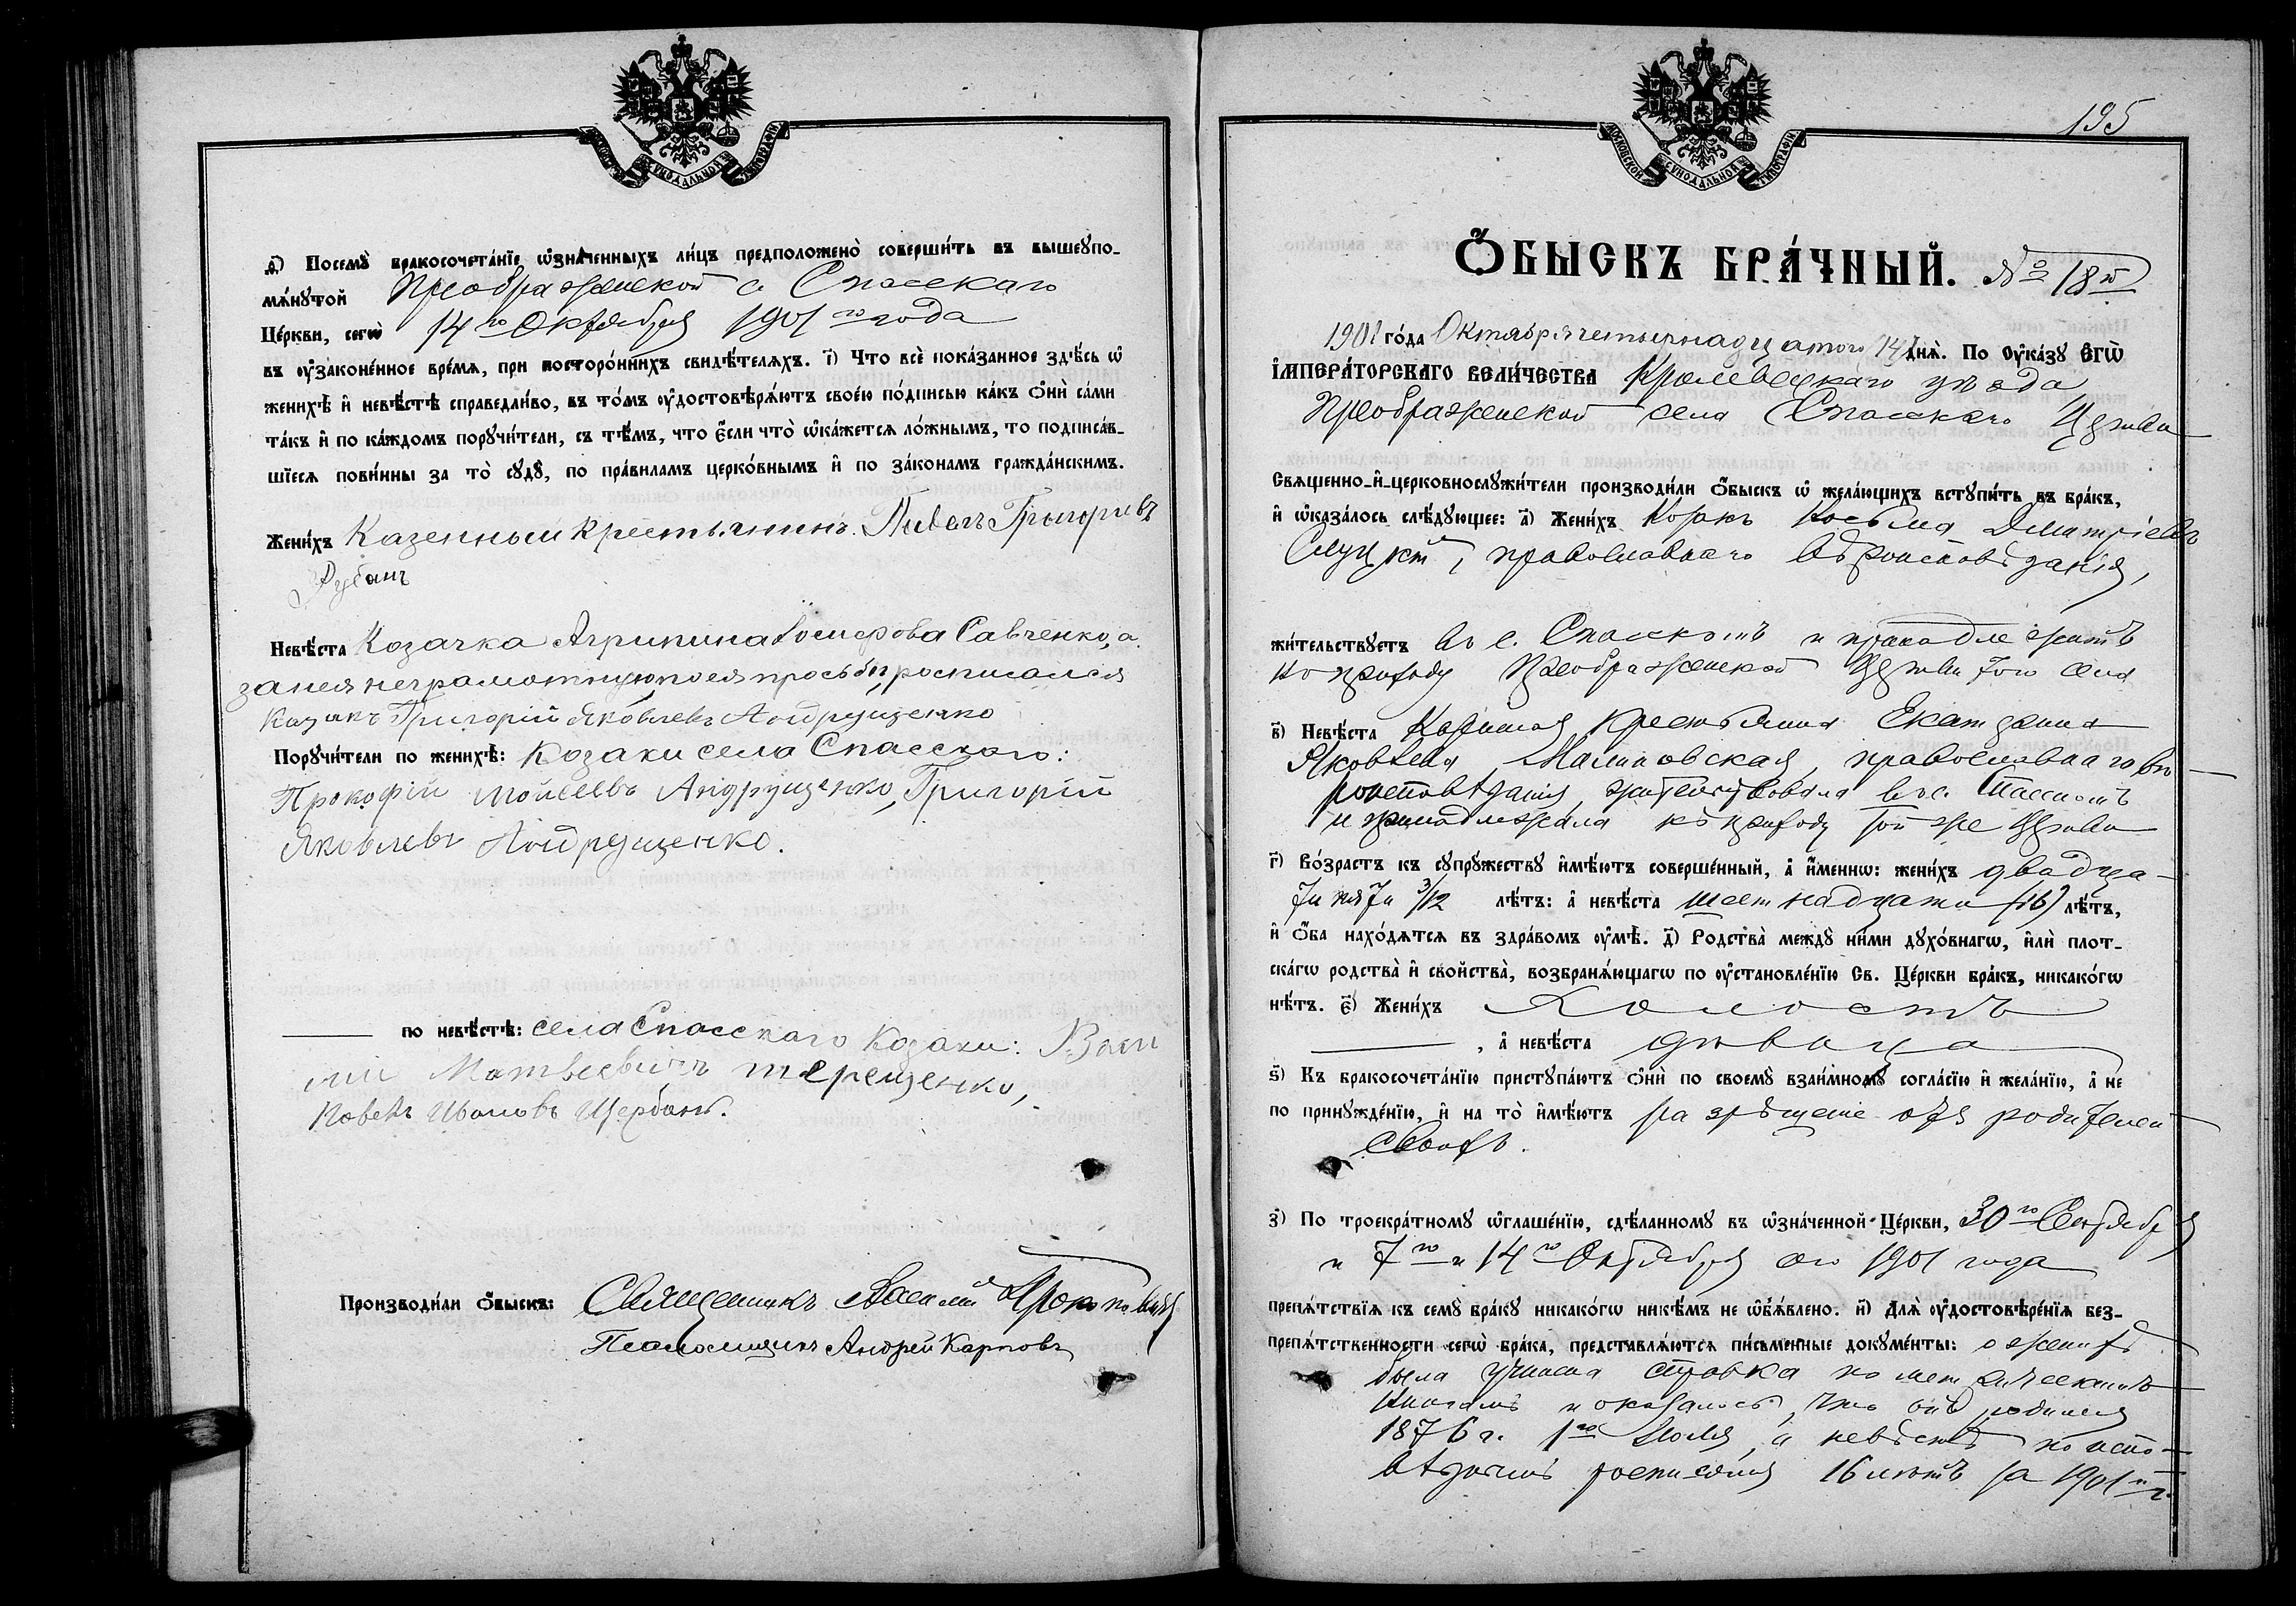 МОСКОВСКОЙ СѴНОДАЛЬНОЙ ТИПОГРАФІИ
ѳ҃) Посемꙋ̀ бракосочета́нїе ѡ҆зна́ченныхъ ли́цъ предположено̀ соверши́ть въ вышеꙋпо-
мѧ́нꙋтой Преображенской с. Спасскаго
Це́ркви, сегѡ̀ 14го Октября 1901го года
въ ᲂу҆зако́ненное вре́мѧ, при посторо́ннихъ свидѣ́телѧхъ. і҃) Что всѐ пока́занное здѣ́сь ѡ҆
женихѣ̀ и҆ невѣ́стѣ справедли́во, въ то́мъ ᲂу҆достовѣрѧ́ютъ свое́ю по́дписью ка́къ ѻ҆нѝ са́ми
та́къ и҆ по ка́ждомъ порꙋчи́тели, съ тѣ́мъ, что є҆́сли что̀ ѡ҆ка́жетсѧ ло́жнымъ, то подписа́в-
шїесѧ пови́нны за то̀ сꙋдꙋ̀, по пра́виламъ церко́внымъ и҆ по зако́намъ гражда́нскимъ.
Жени́хъ Казенный крестьянинъ Павелъ Григорьевъ
Рубанъ
Невѣ́ста Козачка Агрипина Савченко, а
за нея неграмотную, по ея просьбы, росписался
Казакъ Григорій Яковлевъ Андрущенко
Порꙋчи́тели по женихѣ̀: Козаки села Спасского:
Прокофій Мойсеевъ Андрущенко, Григорій
Яковлевъ Андрущенко.
по невѣ́стѣ: села Спасскаго Козаки: Васи
лий Матвеевичъ терещенко,
Повелъ Ивановъ Щербакъ.
Производи́ли ѻ҆́быскъ: Священникъ Василій
Псаломщикъ Андрей Карповъ
МОСКОВСКОЙ СѴНОДАЛЬНОЙ ТИПОГРАФІИ
195
Ѻ҆́БЫСКЪ БРА́ЧНЫЙ. № 18й
1901 го́да Октября четырнадцатого 14 днѧ̀. По ᲂу҆ка́зꙋ Є҆ГѠ̀
І҆МПЕРА́ТОРСКАГО ВЕЛИ́ЧЕСТВА Кролевецкаго уѣзда
Преображенской села Спасскаго Церкви
Свѧщенно-и҆-церковнослꙋжи́тели производи́ли ѻ҆́быскъ ѡ҆ жела́ющихъ встꙋпи́ть въ бра́къ,
и҆ ѡ҆каза́лось слѣ́дꙋющее: а҃) Жени́хъ Козакъ Косьма Дмитріевъ
Слуцкій, православнаго вѣроисповѣданія,
жи́тельствꙋетъ въ с. Спасскомъ и принадлежитъ
къ приходу Преображенской Церкви того села
в҃) Невѣ́ста Казенная крестьянка Екатерина
Яковлева Малиновская, православнаго вѣ-
роисповѣданія, жительствовала въ с. Спасскомъ
и принадлежала къ приходу той же Церкви
г҃) Во́зрастъ къ сꙋпрꙋ́жествꙋ и҆мѣ́ютъ соверше́нный, а҆ и҆́меннѡ: жени́хъ двадца-
ти пяти 3/12 лѣ́тъ: а҆ невѣ́ста шестнадцати (16) лѣ́тъ,
и҆ ѻ҆́ба нахо́дѧтсѧ въ здра́вомъ ᲂу҆мѣ̀. д҃) Родства̀ междꙋ̀ ни́ми дꙋхо́внагѡ, и҆лѝ плот-
ска́гѡ родства̀ и҆ сво́йства, возбранѧ́ющагѡ по ᲂу҆становле́нїю Св. Це́ркви бра́къ, никако́гѡ
нѣ́тъ. є҃) Жени́хъ Холостъ
, а҆ невѣ́ста дѣвица
ѕ҃) Къ бракосочета́нїю пристꙋпа́ютъ ѻ҆нѝ по своемꙋ̀ взаи́мномꙋ согла́сїю и҆ жела́нїю, а҆ не
по принꙋжде́нїю, и҆ на то̀ и҆мѣ́ютъ разрѣшеніе отъ родителей
своихъ.
з҃) По троекра́тномꙋ ѡ҆глаше́нїю, сдѣ́ланномꙋ въ ѡ҆зна́ченной Це́ркви, 30го Сентября
и 7го и 14го Октября сего 1901 года
препѧ́тствїѧ къ семꙋ̀ бра́кꙋ никако́гѡ никѣ́мъ не ѡ҆б̾ѧ́влено. и҃) Длѧ̀ ᲂу҆достовѣре́нїѧ без-
препѧ́тственности сегѡ̀ бра́ка, представлѧ́ютсѧ пи́сьменные докꙋме́нты: о женихѣ
была учинена справка по метрическимъ
книгамъ и оказалось, что онъ родился
1876 г. 1го Іюля, а невѣстѣ по испо-
вѣдной росписи 16 лѣтъ за 1901й г.